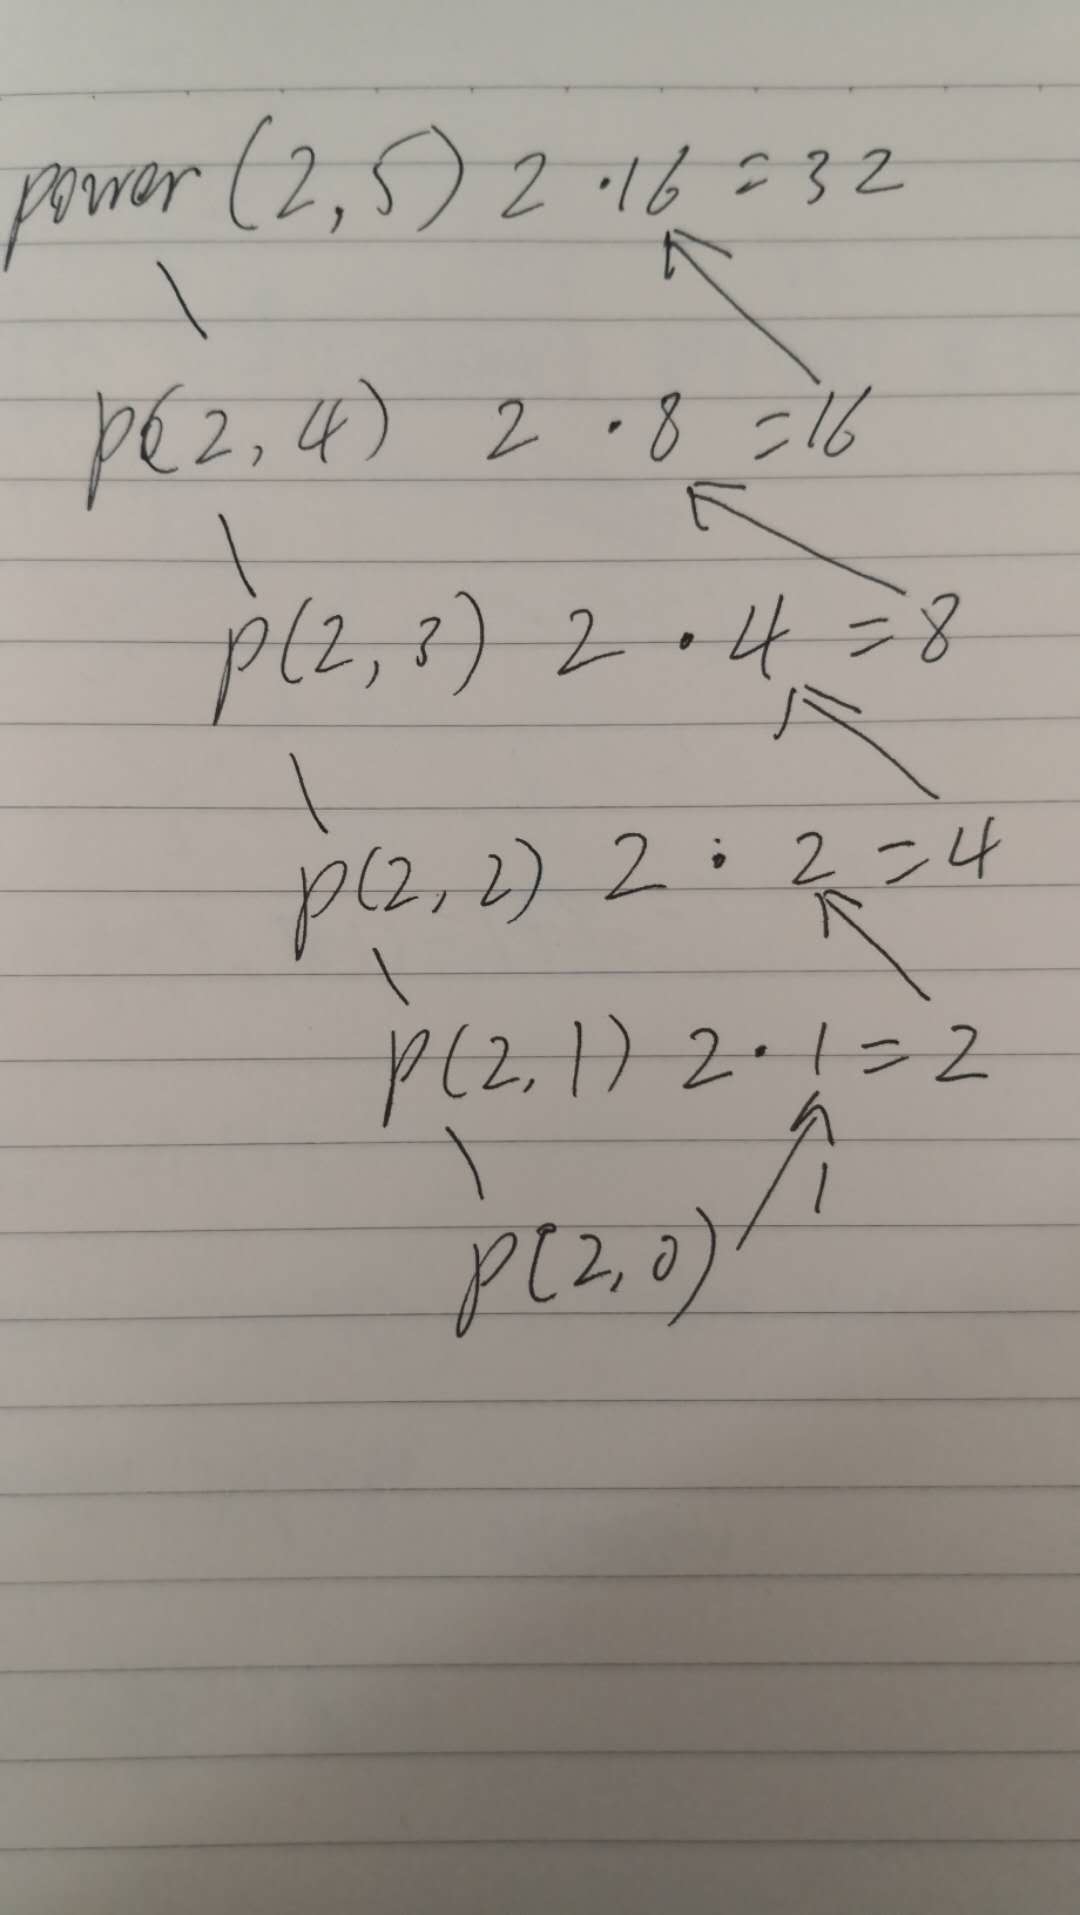 power (2,5) 2 · 16 = 32
p(2,4) 2 · 8 = 16
p(2,3) 2 · 4 = 8
p(2,2) 2 · 2 = 4
p(2,1) 2 · 1 = 2
1
p(2,0)